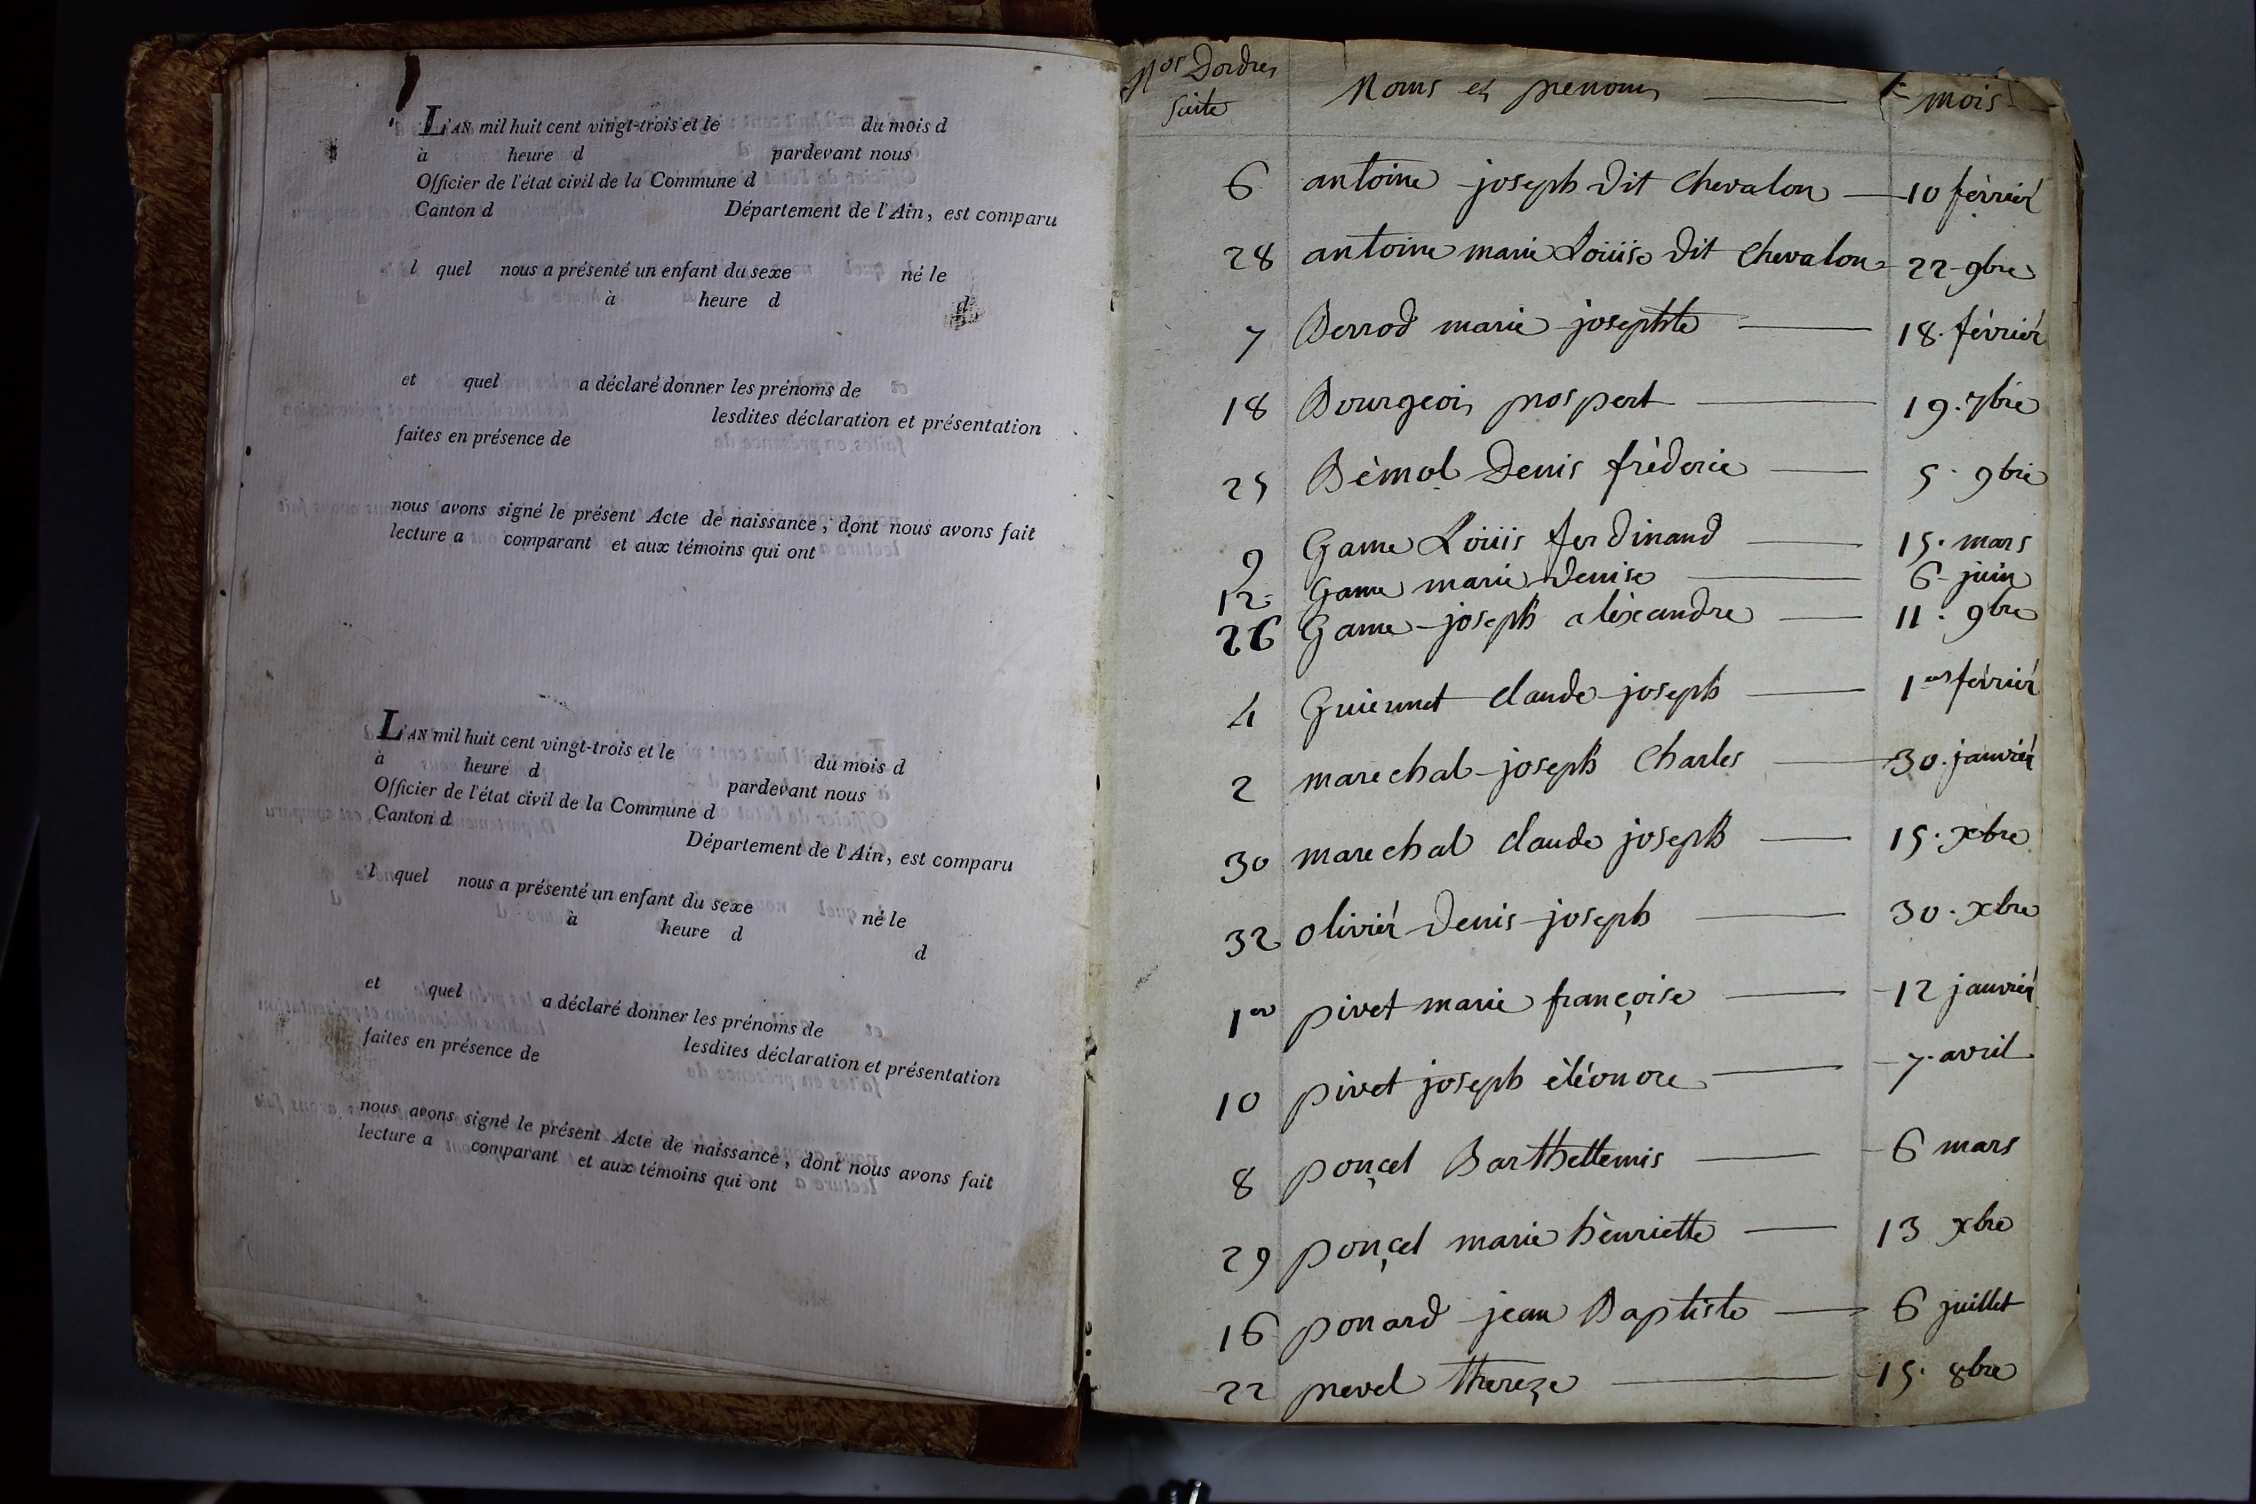 L'AN mil huit cent vingt-trois et le du mois d
à heure d pardevant nous
Officier de l'état civil de la Commune d
Canton d Département de l'Ain, est comparu
l quel nous a présenté un enfant du sexe né le
à heure d d
et quel a déclaré donner les prénoms de
lesdites déclaration et présentation
faites en présence de
nous avons signé le présent Acte de naissance, dont nous avons fait
lecture a comparant et aux témoins qui ont
L'AN mil huit cent vingt-trois et le du mois d
à heure d pardevant nous
Officier de l'état civil de la Commune d
Canton d Département de l'Ain, est comparu
l quel nous a présenté un enfant du sexe né le
à heure d d
et quel a déclaré donner les prénoms de
lesdites déclaration et présentation
faites en présence de
nous avons signé le présent Acte de naissance, dont nous avons fait
lecture a comparant et aux témoins qui ont
Nos Dordres Noms et prenoms mois
suite
6 antoine joseph dit Chevalon 10 février
28 antoine marie Loüise dit Chevalon 22 9bre
7 Berrod marie josephte 18. février
18 Bourgeois prospert 19. 7bre
25 Bèmol Denis frèderic 5. 9bre
9 Game Loüis ferdinand 15. mars
12 Game marie denise 6 juin
26 Game joseph alèxandre 11. 9bre
4 Guiennet claude joseph 1er février
2 marechal joseph Charles 30. janvier
30 marechal claude joseph 15. xbre
32 olivier denis joseph 30. xbre
1er pivet marie françoise 12 janvier
10 pivet joseph èlèonore 7. avril
8 ponçet Barthellemis 6 mars
29 ponçet marie hènriette 13 xbre
16 ponard jean Baptiste 6 juillet
22 prevel thereze 15. 8bre